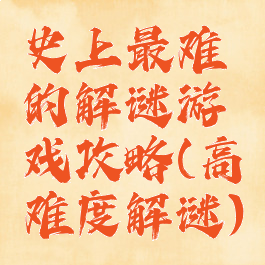 史上最难
的解谜游
戏攻略(高
难度解谜)